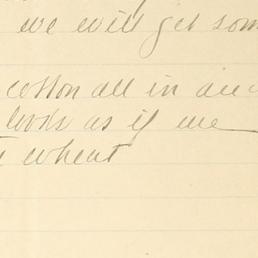 we will get som
cotton all in and
looks as if we
wheat